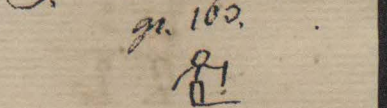 gr. 160.